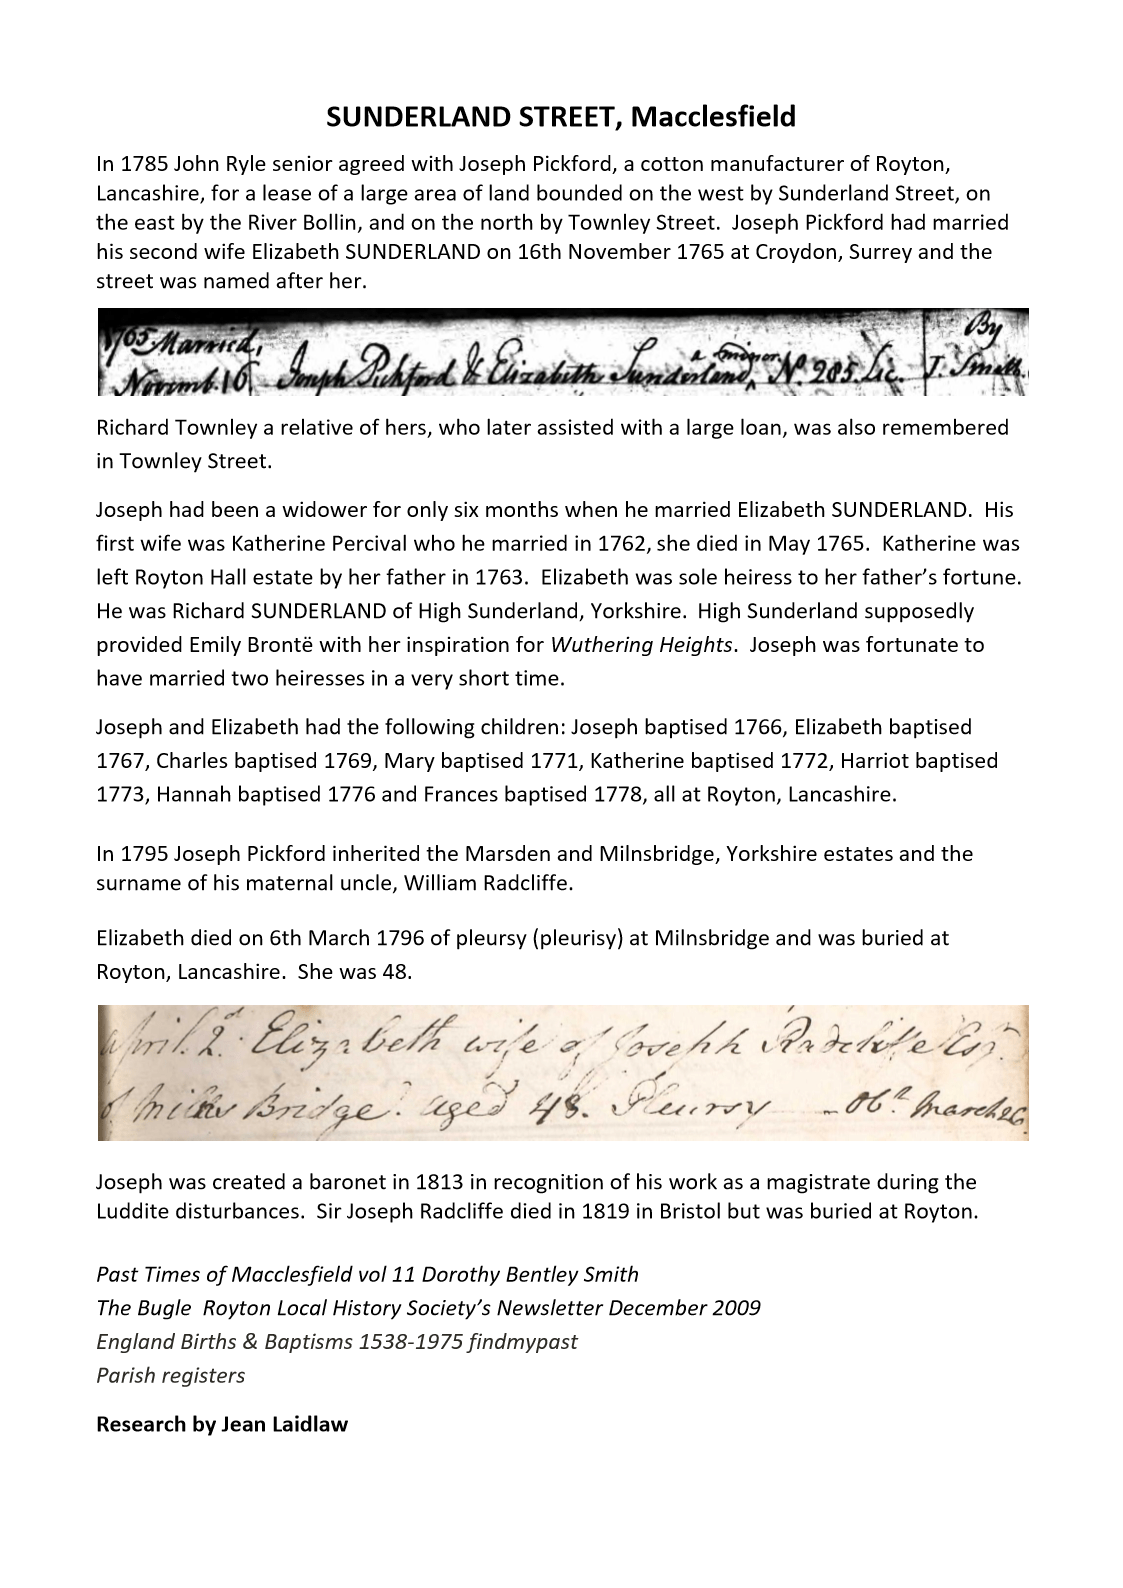 SUNDERLAND STREET, Macclesfield
In 1785 John Ryle senior agreed with Joseph Pickford, a cotton manufacturer of Royton,
Lancashire, for a lease of a large area of land bounded on the west by Sunderland Street, on
the east by the River Bollin, and on the north by Townley Street.  Joseph Pickford had married
his second wife Elizabeth SUNDERLAND on 16th November 1765 at Croydon, Surrey and the
street was named after her.
1765 Married, By
Novemb. 16 Joseph Pickford & Elizabeth Sunderland, a minor N. 285. Lic. J. Smith.
Richard Townley a relative of hers, who later assisted with a large loan, was also remembered
in Townley Street.
Joseph had been a widower for only six months when he married Elizabeth SUNDERLAND.  His
first wife was Katherine Percival who he married in 1762, she died in May 1765.  Katherine was
left Royton Hall estate by her father in 1763.  Elizabeth was sole heiress to her father’s fortune.
He was Richard SUNDERLAND of High Sunderland, Yorkshire.  High Sunderland supposedly
provided Emily Brontë with her inspiration for Wuthering Heights.  Joseph was fortunate to
have married two heiresses in a very short time.
Joseph and Elizabeth had the following children: Joseph baptised 1766, Elizabeth baptised
1767, Charles baptised 1769, Mary baptised 1771, Katherine baptised 1772, Harriot baptised
1773, Hannah baptised 1776 and Frances baptised 1778, all at Royton, Lancashire.
In 1795 Joseph Pickford inherited the Marsden and Milnsbridge, Yorkshire estates and the
surname of his maternal uncle, William Radcliffe.
Elizabeth died on 6th March 1796 of pleursy (pleurisy) at Milnsbridge and was buried at
Royton, Lancashire.  She was 48.
April. 2d. Elizabeth wife of Joseph Radcliffe Esqr.
of Bridge. aged 48. Pleursy - 06th March
Joseph was created a baronet in 1813 in recognition of his work as a magistrate during the
Luddite disturbances.  Sir Joseph Radcliffe died in 1819 in Bristol but was buried at Royton.
Past Times of Macclesfield vol 11 Dorothy Bentley Smith
The Bugle  Royton Local History Society’s Newsletter December 2009
England Births & Baptisms 1538-1975 findmypast
Parish registers
Research by Jean Laidlaw